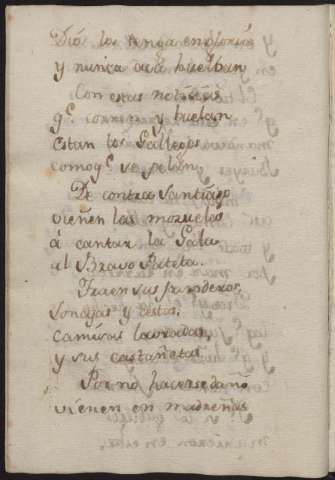 Dios los tenga en gloria
y nunca acá buelban
Con estas noticias
q.e corren y buelan
estan los Gallegos
como q.e se pelan
De contra Santiago
vienen las mozuelas
á cantar la Gala
al Bravo Pateta.
Traen sus panderos,
Sonajas y cestos,
camisas labradas,
y sus castañetas
Por no hacerse daño
vienen en madreñas